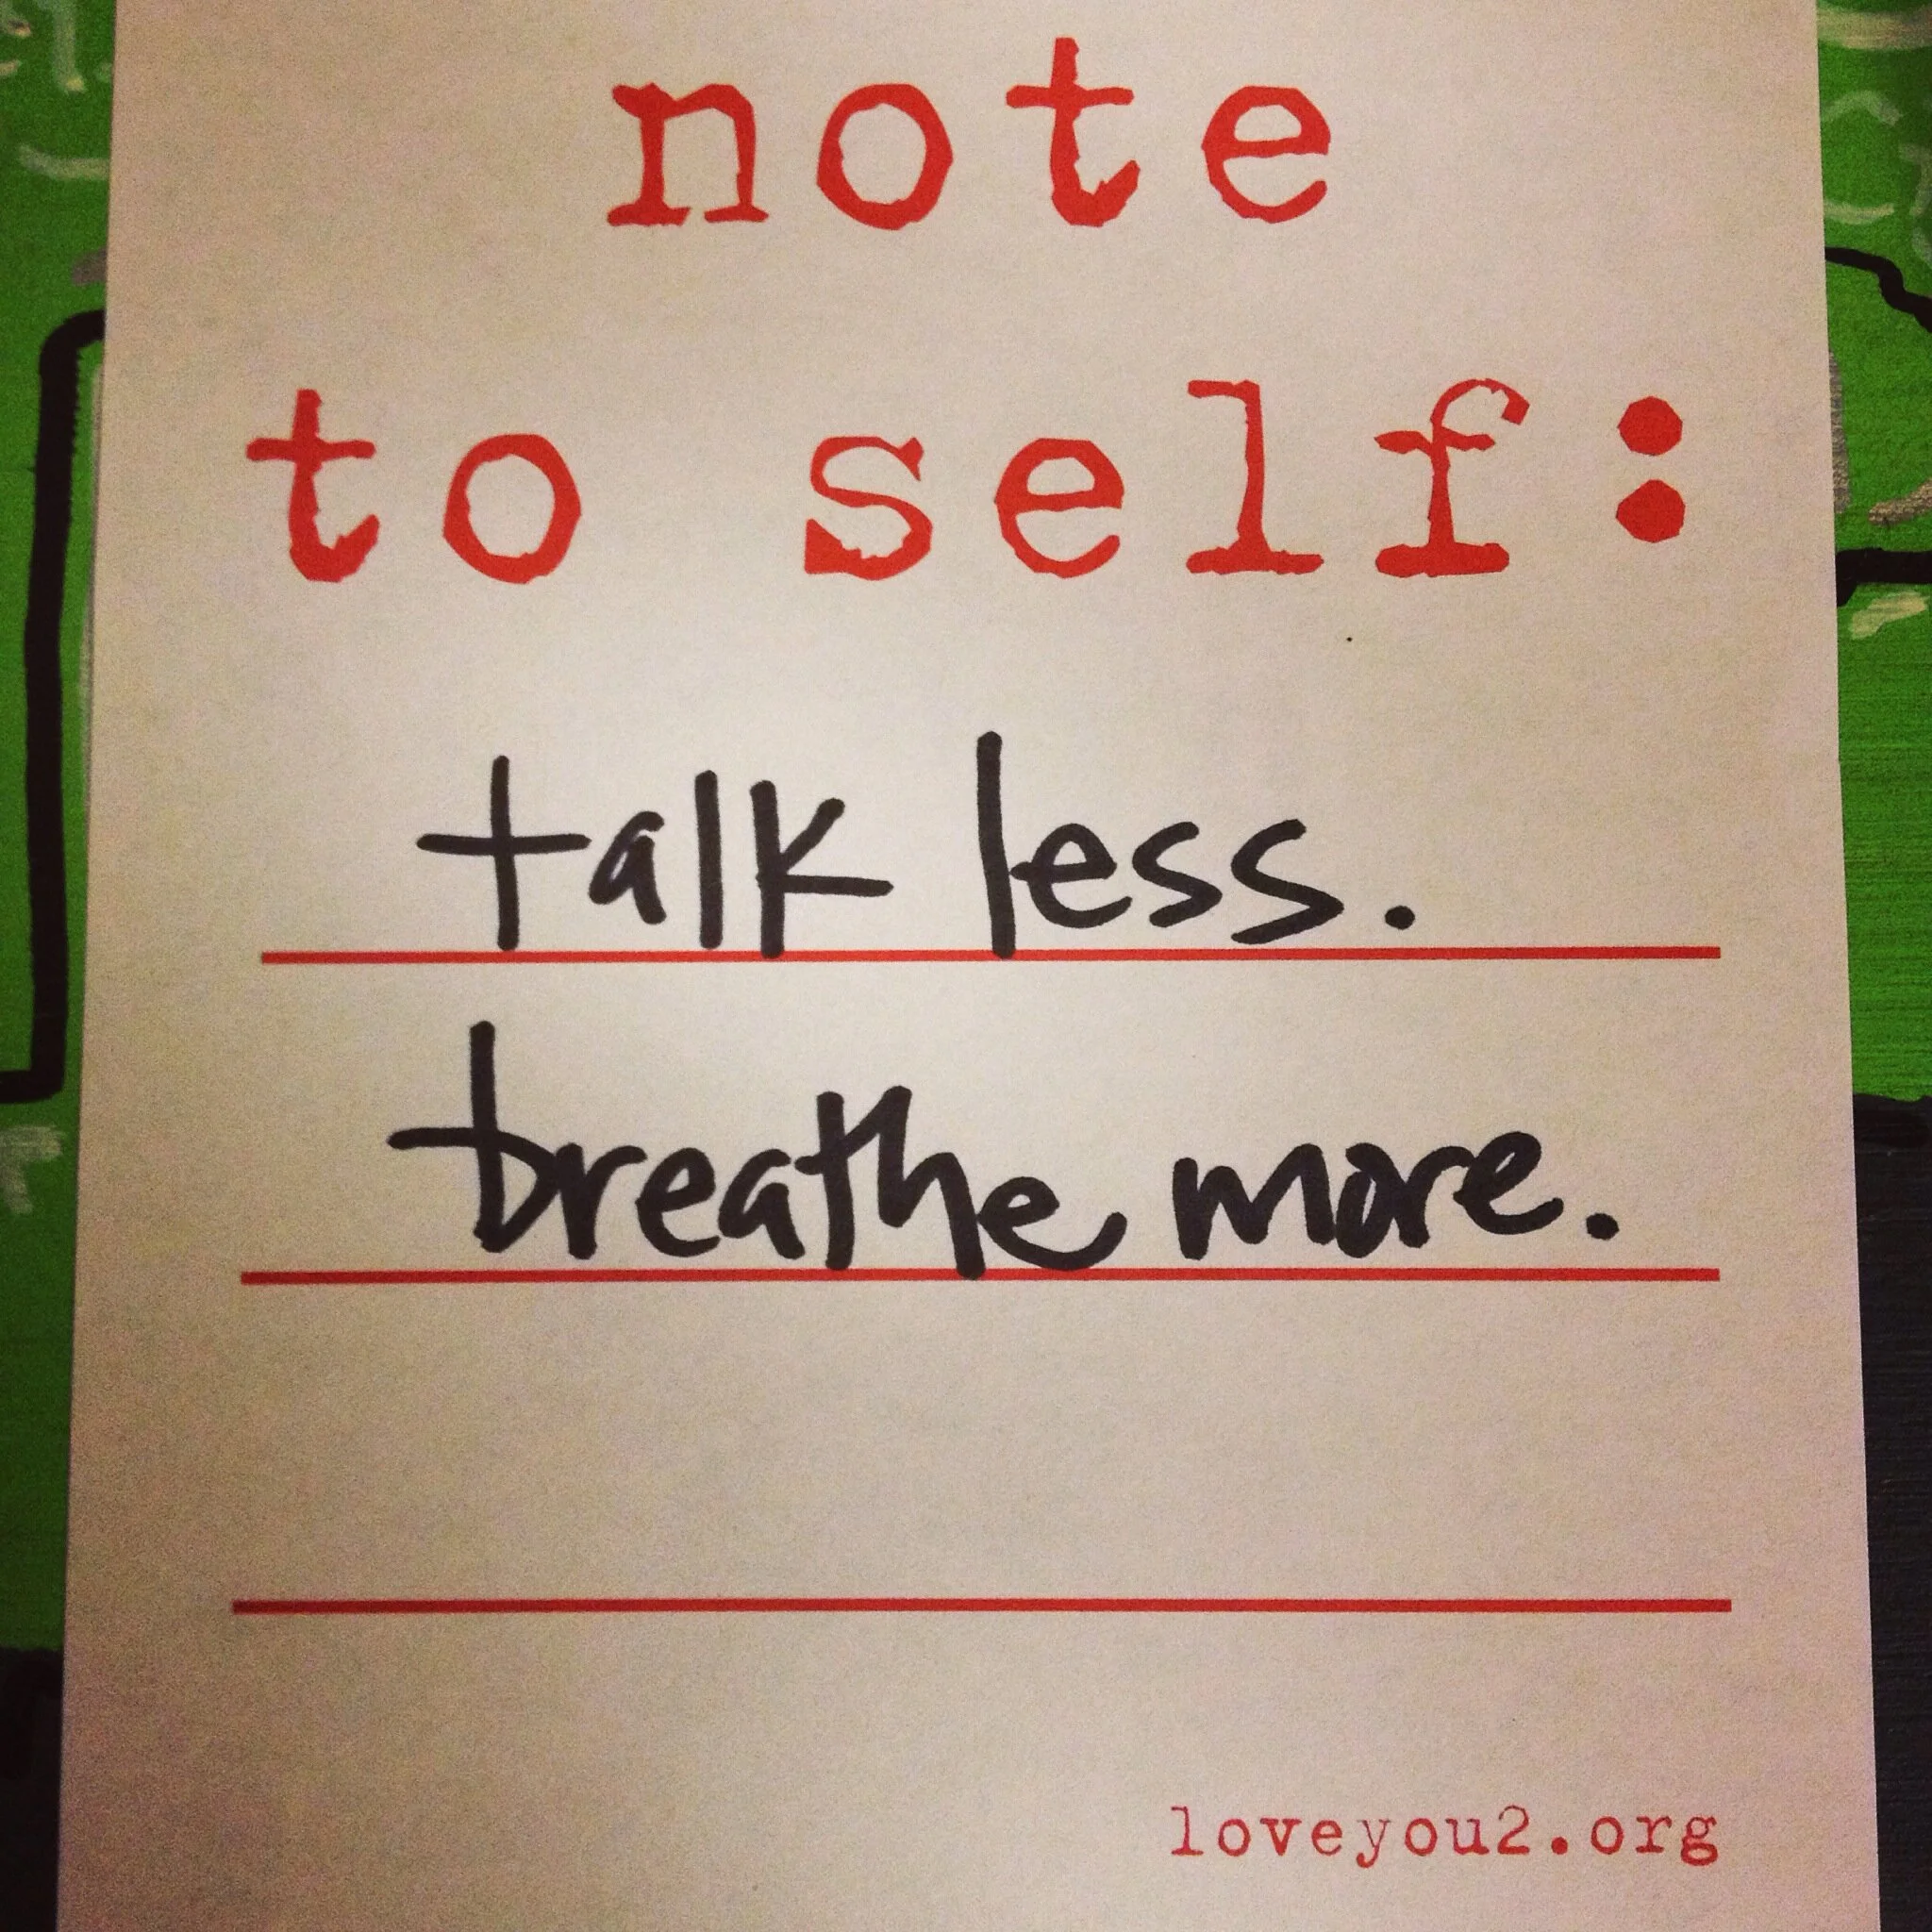 note
to self:
talk less.
breathe more.
loveyou2.org